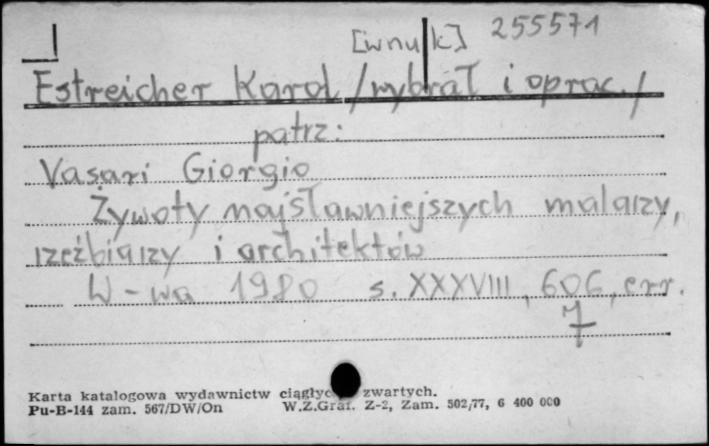 [wnuk] 255571
Estreicher Karol /wybrał i oprac./
patrz:
Vasari Giorgio
Żywoty najsławniejszych malarzy,
rzeźbiarzy i architektów
W-wa 1980 s. XXXVIII, 606, err.
7
Karta katalogowa wydawnictw zwartych.
Pu-B-144 zam. 567/DW/On W.Z.Graf. Z-2, Zam. 502/77, 6 400 000